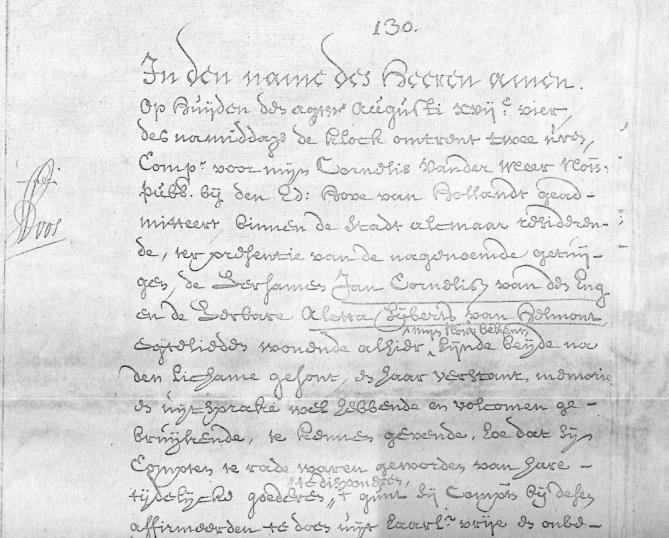 130.
In den name des Heeren amen.
Op Huijden den agsten Augusti xvij.c vier,
des namiddags de klock omtrent twee uren,
Compr. voor mijn Cornelis vander Meer Nots:
pubb. bij den Ed: Hove van Hollandt gead-
mitteert, binnen de stadt alcmaar resideren-
de, ter presentie van de nagenoemde getuij-
gen, de Eersamen Jan Cornelisz van den
en de Eerbare Aletta Sijberts van Helmont
mijn Nots bekent,
Egtelieden wonende alhier, sijnde beijde na
den lichame gesont, en haar verstant, memorie,
en uijtsprake wel hebbende en volcomen ge-
bruijkende, te kennen gevende, hoe dat sij
Compten te rade waren geworden van hare
te disponeren,
tijdelijcke goederen, 't gunt sij Compten bij desen
affirmeerden te doen uijt haarlr. vrije en onbe-